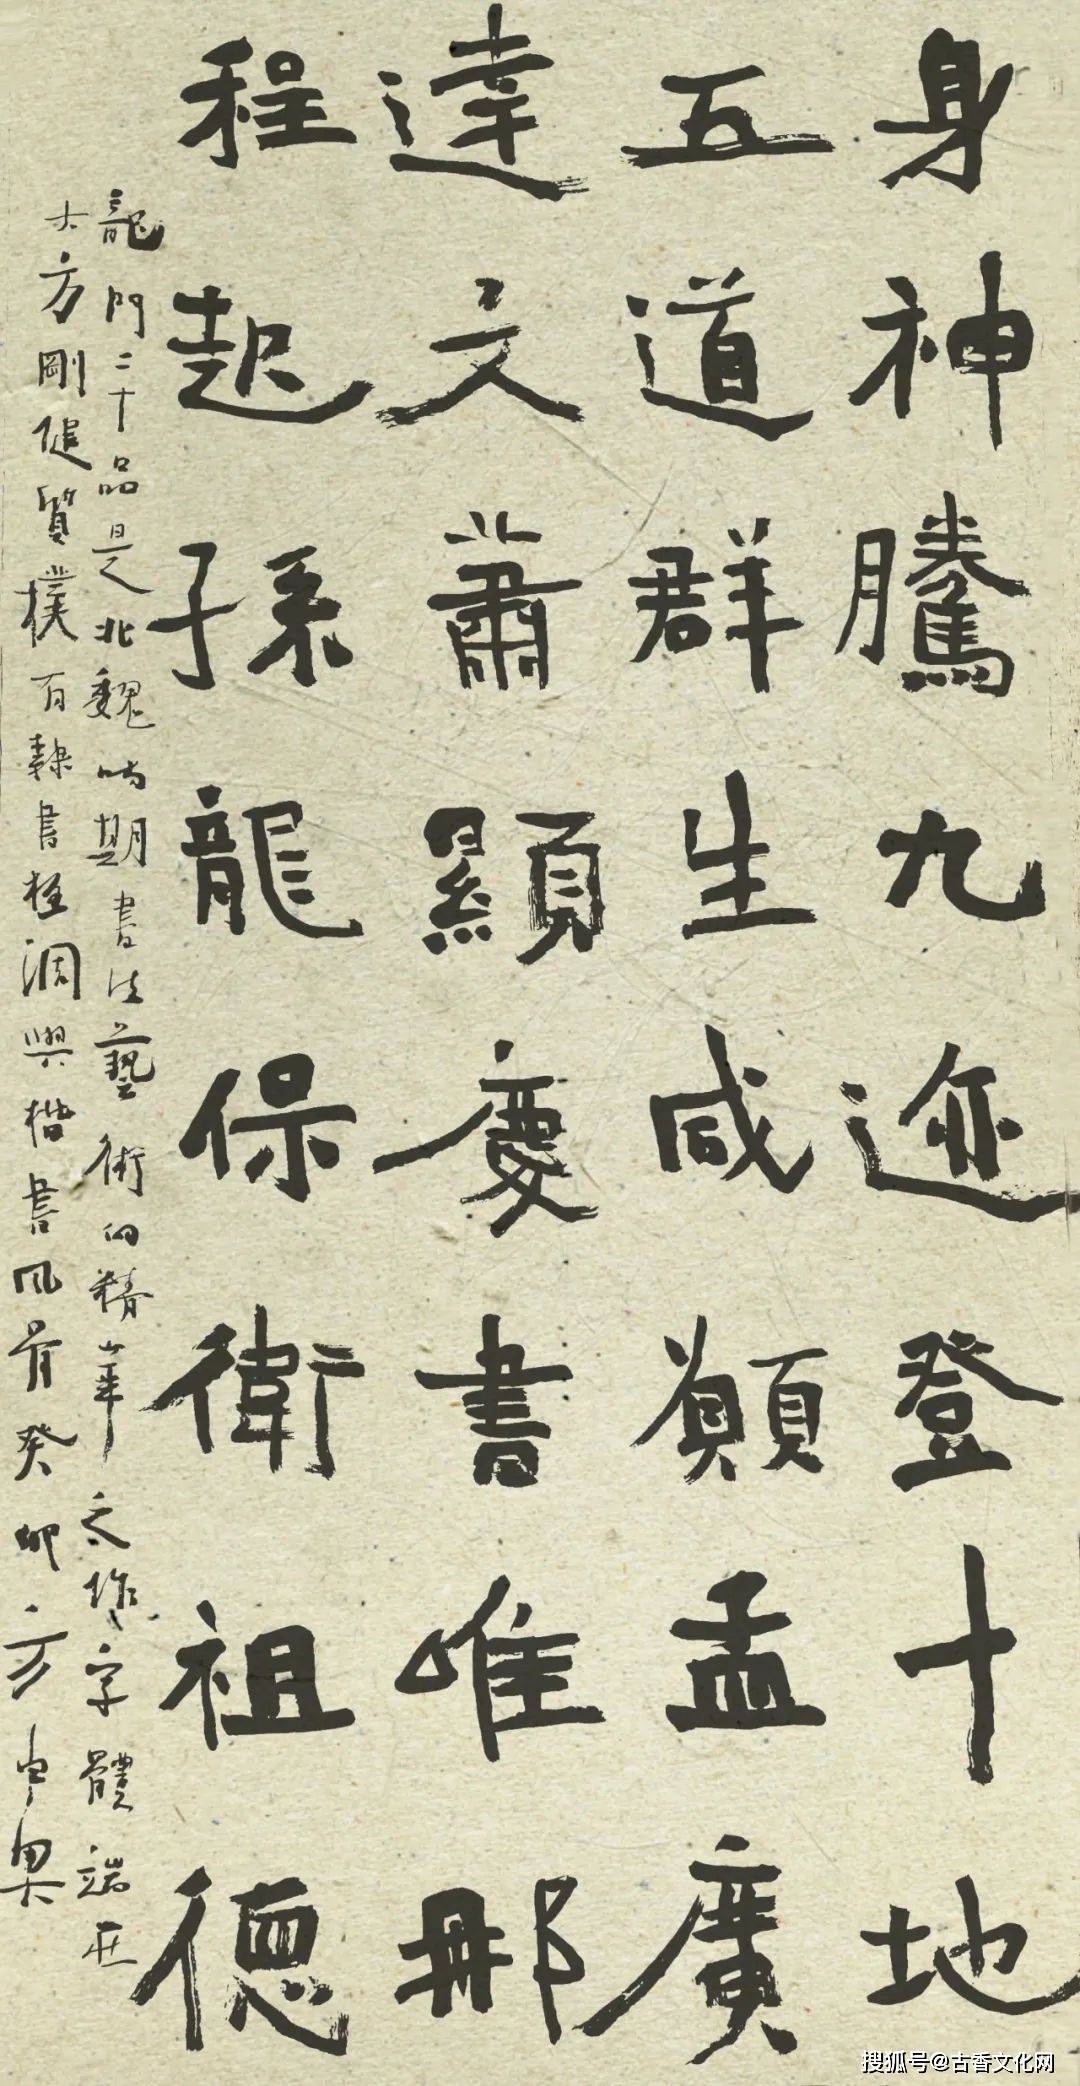 身神騰九迹登十地
五道群生咸願孟廣
達文蕭顯慶書唯那
程起孫龍保衛祖德
龍門二十品是北魏時期書法藝術的精華之作字體端莊
大方剛健質樸有隸書極潤與楷書風骨癸卯方申果
搜狐号@古香文化网